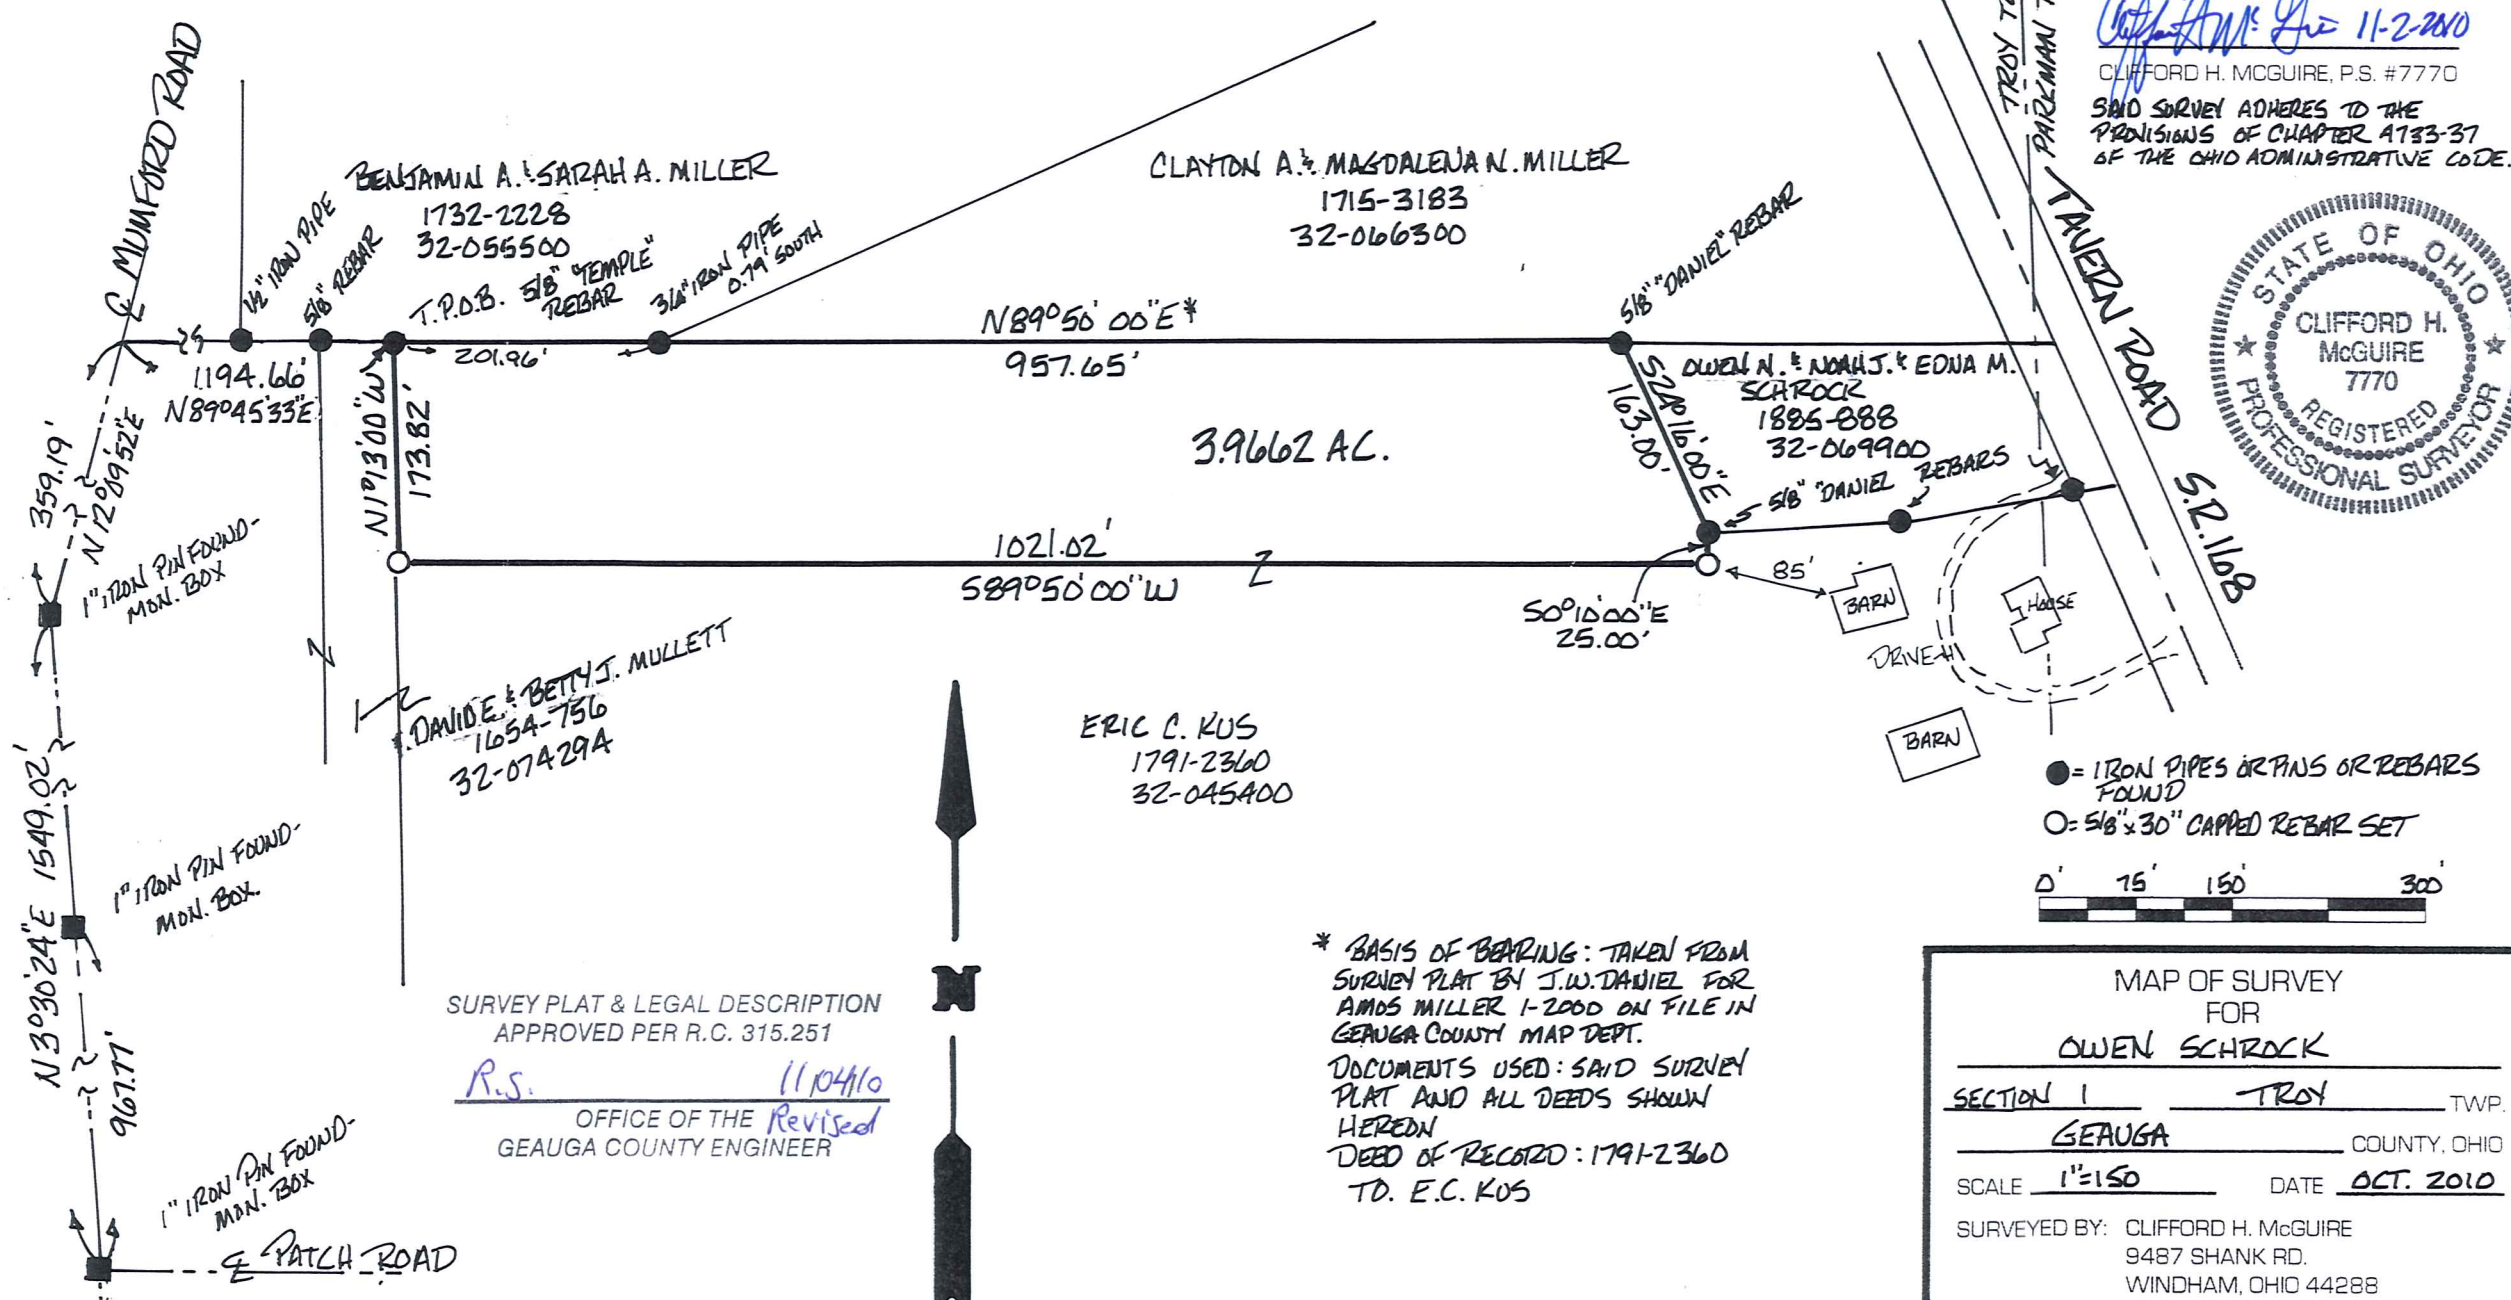 ℄ MUMFORD ROAD
1/2" IRON PIPE
5/8" REBAR
BENJAMIN A. & SARAH A. MILLER
1732-2228
32-055500
T.P.O.B. 5/8" "TEMPLE"
REBAR
3/4" IRON PIPE
0.79' SOUTH
CLAYTON A. & MAGDALENA N. MILLER
1715-3183
32-066300
5/8" "DANIEL" REBAR
TROY
PARKMAN
11-2-2010
CLIFFORD H. MCGUIRE, P.S. #7770
SAID SURVEY ADHERES TO THE
PROVISIONS OF CHAPTER 4733-37
OF THE OHIO ADMINISTRATIVE CODE.
STATE OF OHIO
CLIFFORD H.
McGUIRE
7770
REGISTERED
PROFESSIONAL SURVEYOR
TAVERN ROAD
S.R. 168
1194.66'
N89°45'33"E
201.96'
N89°50'00"E*
957.65'
N1°31'00"W
173.82'
3.9662 AC.
S24°16'00"E
163.00'
OWEN N. & NOAH J. & EDNA M.
SCHROCK
1885-888
32-069900
5/8" "DANIEL" REBARS
359.19'
N12°09'52"E
1" IRON PIN FOUND-
MON. BOX
1021.02'
S89°50'00"W
Z
S0°10'00"E
25.00'
85'
BARN
HOUSE
DRIVE
BARN
DAVID E. & BETTY J. MULLETT
1654-756
32-074294
ERIC C. KUS
1791-2360
32-045400
● = IRON PIPES OR PINS OR REBARS
FOUND
O = 5/8" x 30" CAPPED REBAR SET
0' 75' 150' 300'
N3°30'24"E 1549.02'
1" IRON PIN FOUND-
MON. BOX.
967.77'
1" IRON PIN FOUND-
MON. BOX
℄ PATCH ROAD
SURVEY PLAT & LEGAL DESCRIPTION
APPROVED PER R.C. 315.251
R.S. 11/04/10
OFFICE OF THE Revised
GEAUGA COUNTY ENGINEER
N
* BASIS OF BEARING: TAKEN FROM
SURVEY PLAT BY J.W. DANIEL FOR
AMOS MILLER 1-2000 ON FILE IN
GEAUGA COUNTY MAP DEPT.
DOCUMENTS USED: SAID SURVEY
PLAT AND ALL DEEDS SHOWN
HEREON
DEED OF RECORD: 1791-2360
TO. E.C. KUS
MAP OF SURVEY
FOR
OWEN SCHROCK
SECTION 1 TROY TWP.
GEAUGA COUNTY, OHIO
SCALE 1"=150 DATE OCT. 2010
SURVEYED BY: CLIFFORD H. McGUIRE
9487 SHANK RD.
WINDHAM, OHIO 44288